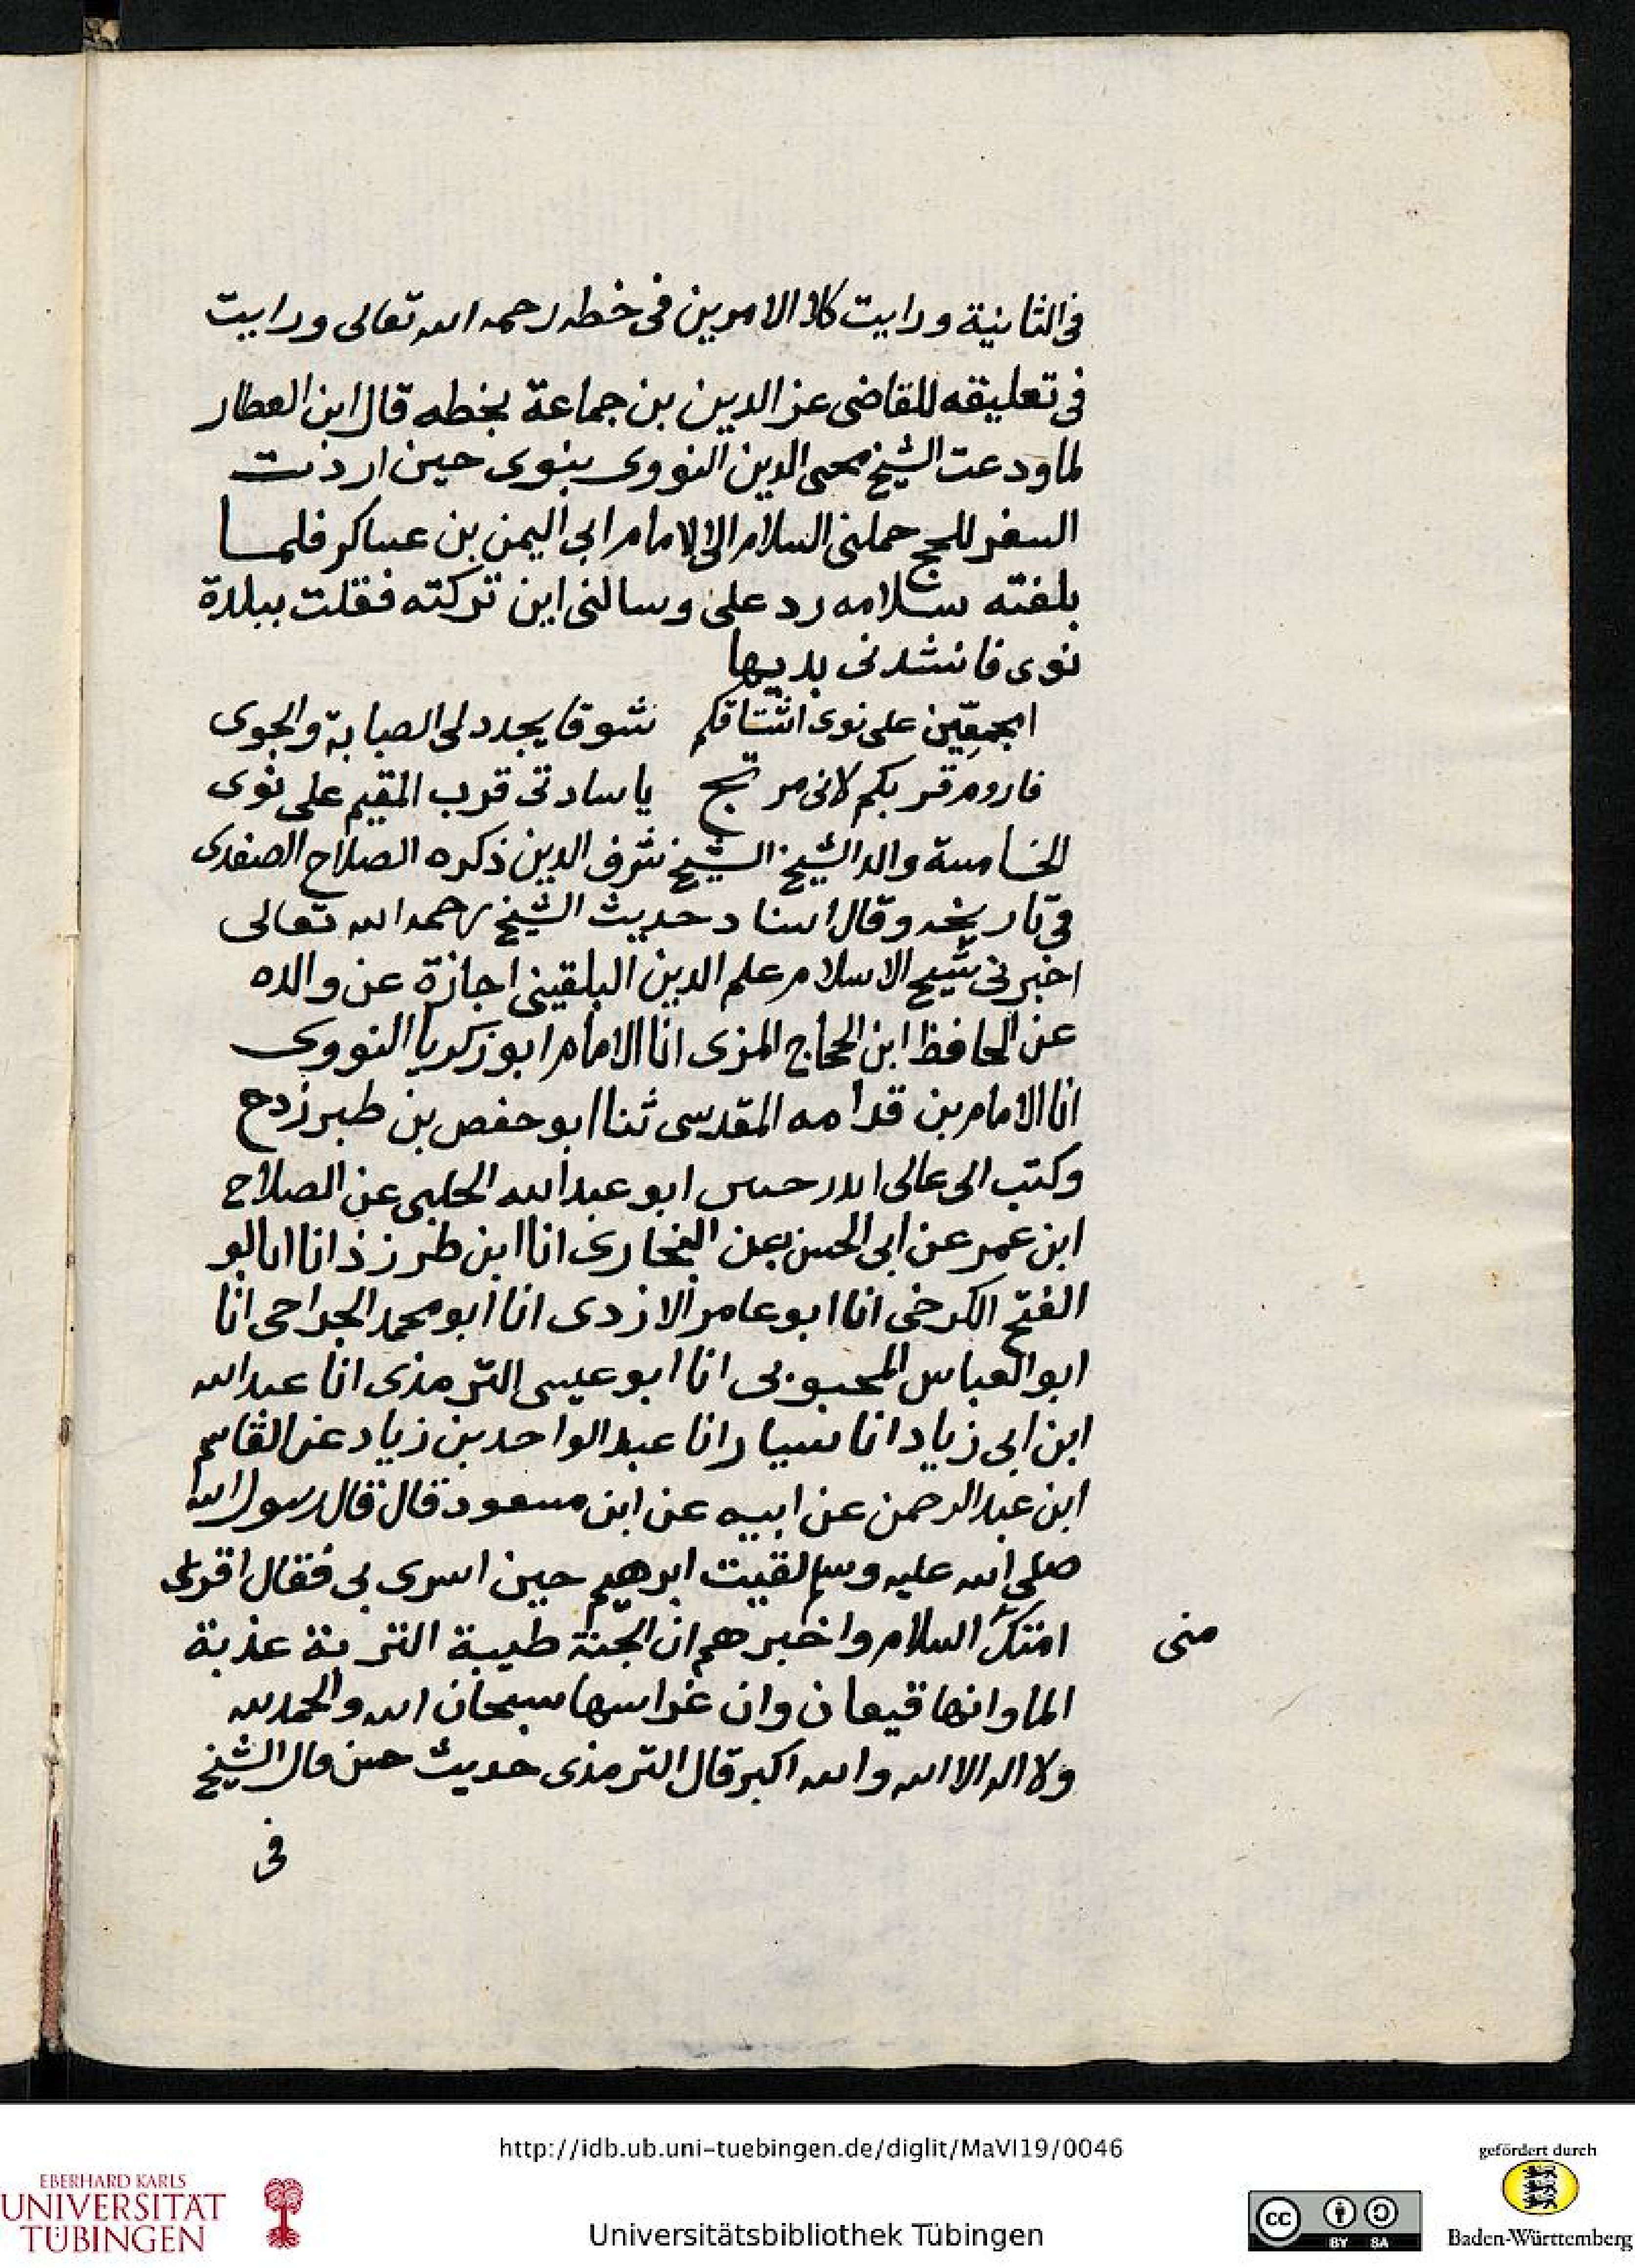 في الثانية ورايت كلا الامرين فى خطه رحمه الله تعالى ورايت
فى تعليقه للقاضى عز الدين بن جماعة بخطه قال ابن العطار
لما ودعت الشيخ محيى الدين النووى بنوى حين اردت
السفر للحج حملنى السلام الى الامام ابى اليمن بن عساكر فلما
بلغته سلامه رد على وسالنى اين تركته فقلت ببلدة
نوى فانشدنى بديها
امجمعين على نوى اشتاقكم شوقا يجدد لى الصبابة والجوى
فاروم قربكم لانى مرتج يا سادتى قرب المقيم على نوى
الخامسة والد الشيخ الشيخ شرف الدين ذكره الصلاح الصفدى
فى تاريخه وقال اسناد حديث الشيخ رحمه الله تعالى
اخبرنى شيخ الاسلام علم الدين البلقينى اجازة عن والده
عن الحافظ ابن الحجاج المزى انا الامام ابو زكريا النووى
انا الامام بن قدامه المقدسى ثنا ابو حفص بن طبرزد ح
وكتب الى عالى ابو عبد الله الحلبى عن الصلاح
ابن عمر عن ابى الحسن بعن البخارى انا ابن طرزذ انا
الفتح الكرخى انا ابو عامر الازدى انا ابو محمد الجراحى انا
ابو العباس المحبوبى انا ابو عيسى الترمذى انا عبد الله
ابن ابى زياد انا سيار انا عبد الواحد بن زياد عن القاسم
ابن عبد الرحمن عن ابيه عن ابن مسعود قال قال رسول الله
صلى الله عليه وسلم لقيت ابرهيم حين اسرى بى فقال اقرئ
امتك السلام واخبرهم ان الجنة طيبة التربة عذبة
منى
الما وانها قيعان وان غراسها سبحان الله والحمد لله
ولا اله الا الله والله اكبر قال الترمذى حديث حسن قال الشيخ
فى
http://idb.ub.uni-tuebingen.de/diglit/MaVI19/0046
EBERHARD KARLS
UNIVERSITÄT
TÜBINGEN
Universitätsbibliothek Tübingen
cc BY SA
gefördert durch
Baden-Württemberg